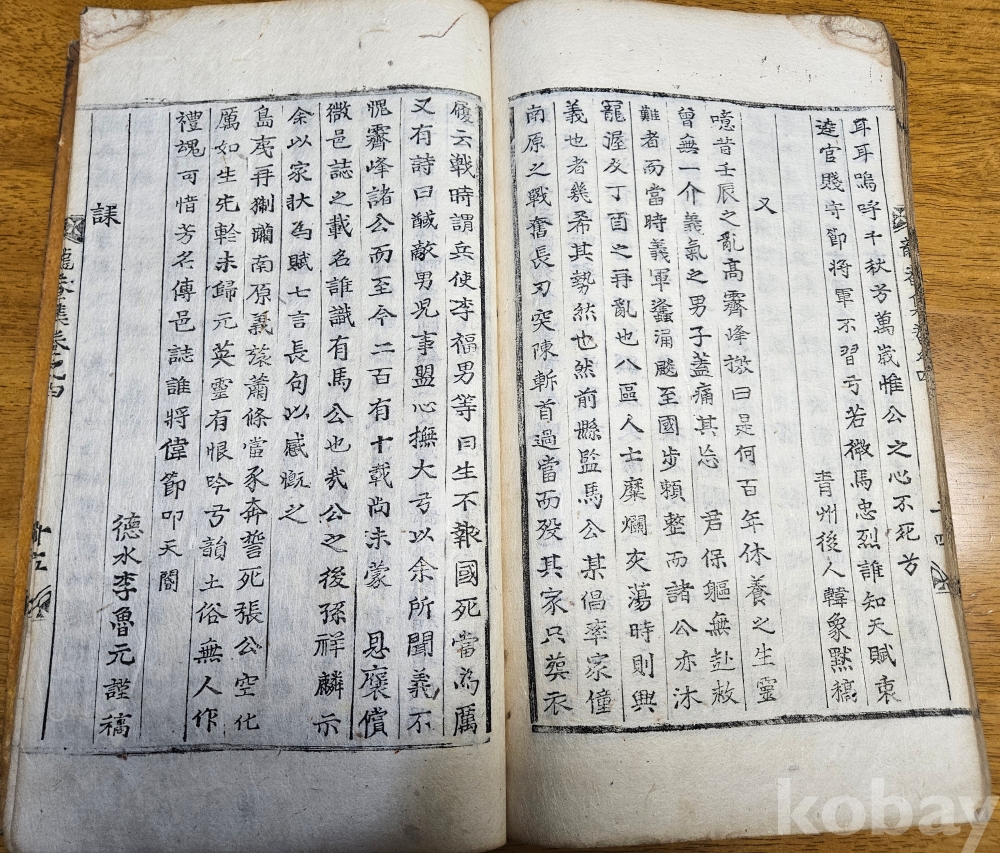 耳耳嗚呼千秋芳萬歲惟公之心不死兮
遠官賤守節將軍不習兮若微馬忠烈誰知天賦衷
青州後人韓象默稿
又
噫昔壬辰之亂高霽峰檄曰是何百年休養之生靈
曾無一介義氣之男子蓋痛其忘 君保軀無赴赦
難者而當時義軍蠭涌颷至國步賴整而諸公亦沐
寵渥及丁酉之再亂也八區人士糜爛夾蕩時則興
義也者幾希其勢然也然前縣監馬公某倡率家僮
南原之戰奮長刃突陳斬首過當而歿其家只葬衣
履云戰時謂兵使李福男等曰生不報國死當為厲
又有詩曰馘敵男兒事盟心撫大兮以余所聞義不
愧霽峰諸公而至今二百有十載尚未蒙 恩褒償
微邑誌之載名誰識有馬公也哉公之後孫祥麟示
余以家狀為賦七言長句以感慨之
島夷再猘南原義旅蕭條當豕奔誓死張公空化
厲如生先軫未歸元英靈有恨吟兮韻土俗無人作
禮魂可惜芳名傳邑誌誰將偉節叩天閽
德水李魯元謹稿
龍卷集卷之四
kobay